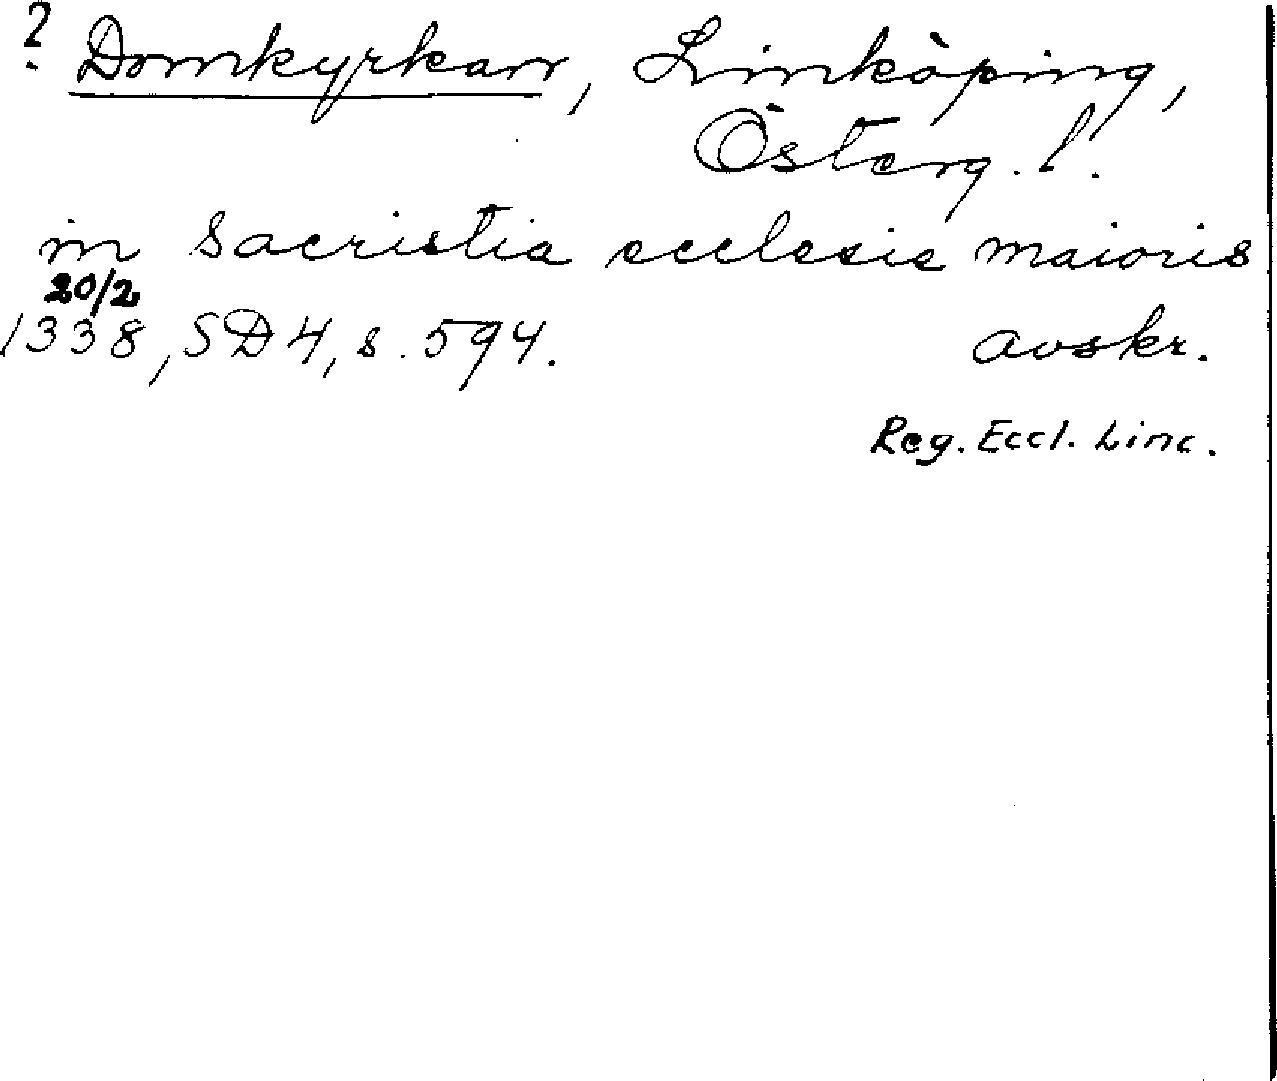 ? Domkyrkan, Linköping,
Österg. l.
in sacristia ecclesie maioris
20/2
1338, SD 4, s. 594. avskr.
Reg. Eccl. Linc.